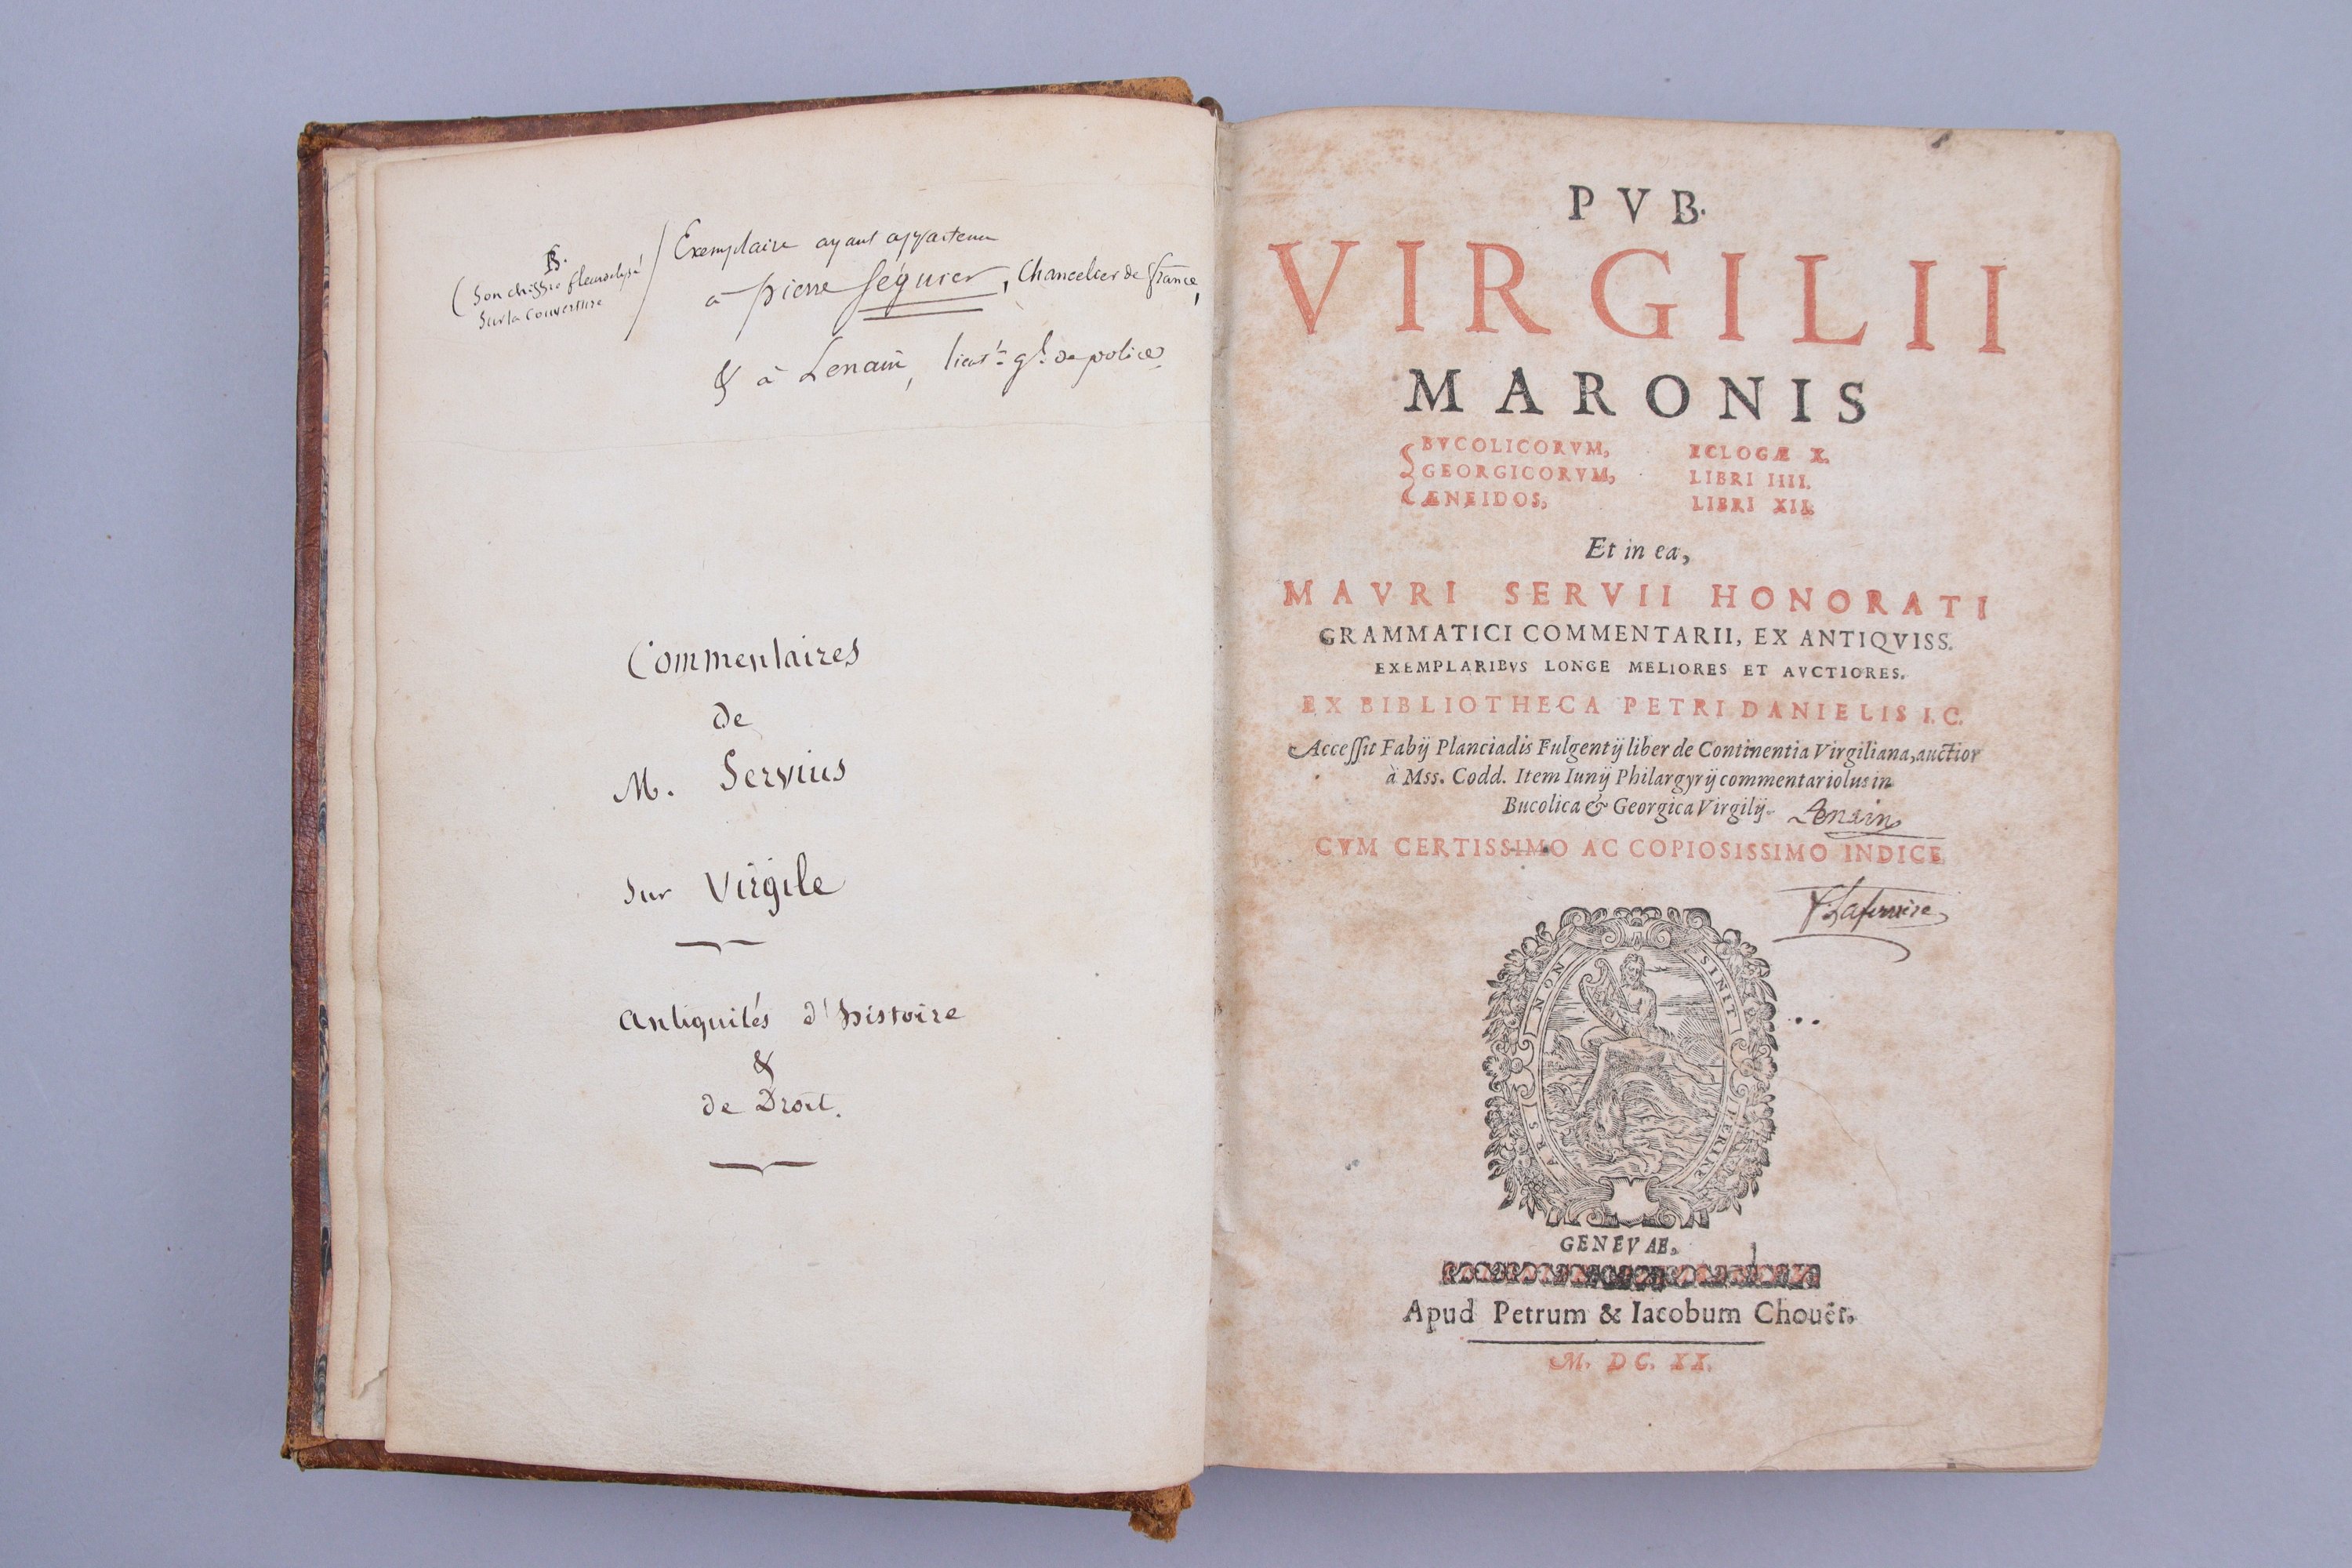 Exemplaire ayant appartenu
à pierre Séguier, Chancelier de france,
& à Lenain, lieut.t g.l de police
B.
(Son chiffre fleurdelysé
sur la couverture
Commentaires
de
M. Servius
sur Virgile
antiquités d'histoire
&
de Droit.
PVB.
VIRGILII
MARONIS
BVCOLICORVM, ECLOGÆ X.
GEORGICORVM, LIBRI IIII.
ÆNEIDOS, LIBRI XII.
Et in ea,
MAVRI SERVII HONORATI
GRAMMATICI COMMENTARII, EX ANTIQVISS.
EXEMPLARIBVS LONGE MELIORES ET AVCTIORES.
EX BIBLIOTHECA PETRI DANIELIS I. C.
Accessit Fabij Planciadis Fulgentij liber de Continentia Virgiliana, auctior
à Mss. Codd. Item Iunij Philargyrij commentariolus in
Bucolica & Georgica Virgilij. Lenain
CVM CERTISSIMO AC COPIOSISSIMO INDICE
Laferriere
ARS NON SINIT PERIRE
GENEVAE,
Apud Petrum & Iacobum Chouët.
M. DC. XX.